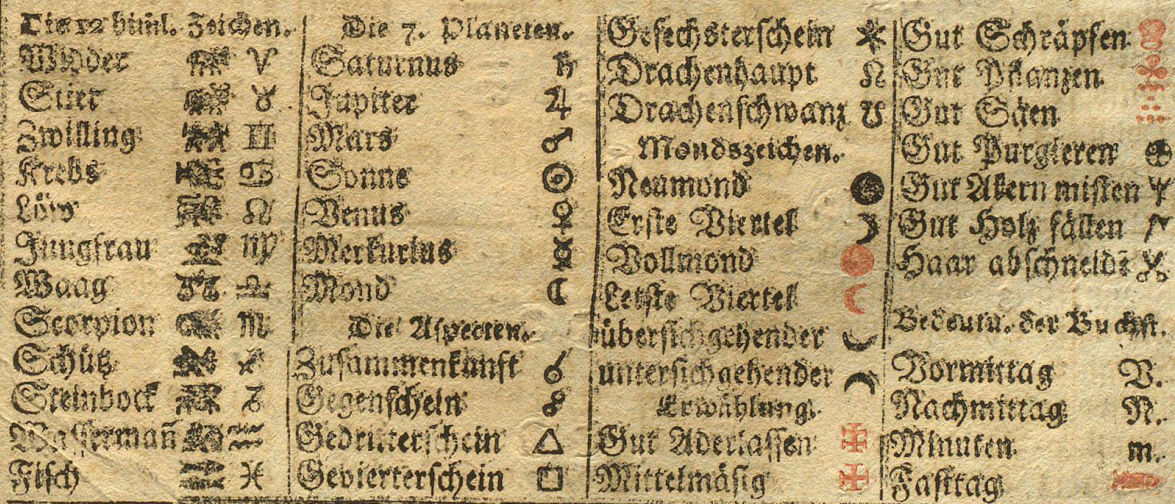 Die 12 himl. Zeichen.
Widder ♈
Stier ♉
Zwilling ♊
Krebs ♋
Löw ♌
Jungfrau ♍
Waag ♎
Scorpion ♏
Schütz ♐
Steinbock ♑
Wassermañ ♒
Fisch ♓
Die 7. Planeten.
Saturnus ♄
Jupiter ♃
Mars ♂
Sonne ☉
Venus ♀
Merkurius ☿
Mond ☾
Die Aspecten.
Zusammenkunft ☌
Gegenschein ☍
Gedritterschein △
Gevierterschein □
Gesechsterschein ⚹
Drachenhaupt ☊
Drachenschwanz ☋
Mondszeichen.
Neumond
Erste Viertel
Vollmond
Letste Viertel
übersichgehender
untersichgehender
Erwählung.
Gut Aderlassen
Mittelmäsig
Gut Schräpfen
Gut Pflanzen
Gut Säen
Gut Purgieren
Gut Akern misten
Gut Holz fällen
Haar abschneidē
Bedeutu. der Buchst.
Vormittag V.
Nachmittag N.
Minuten m.
Fasttag